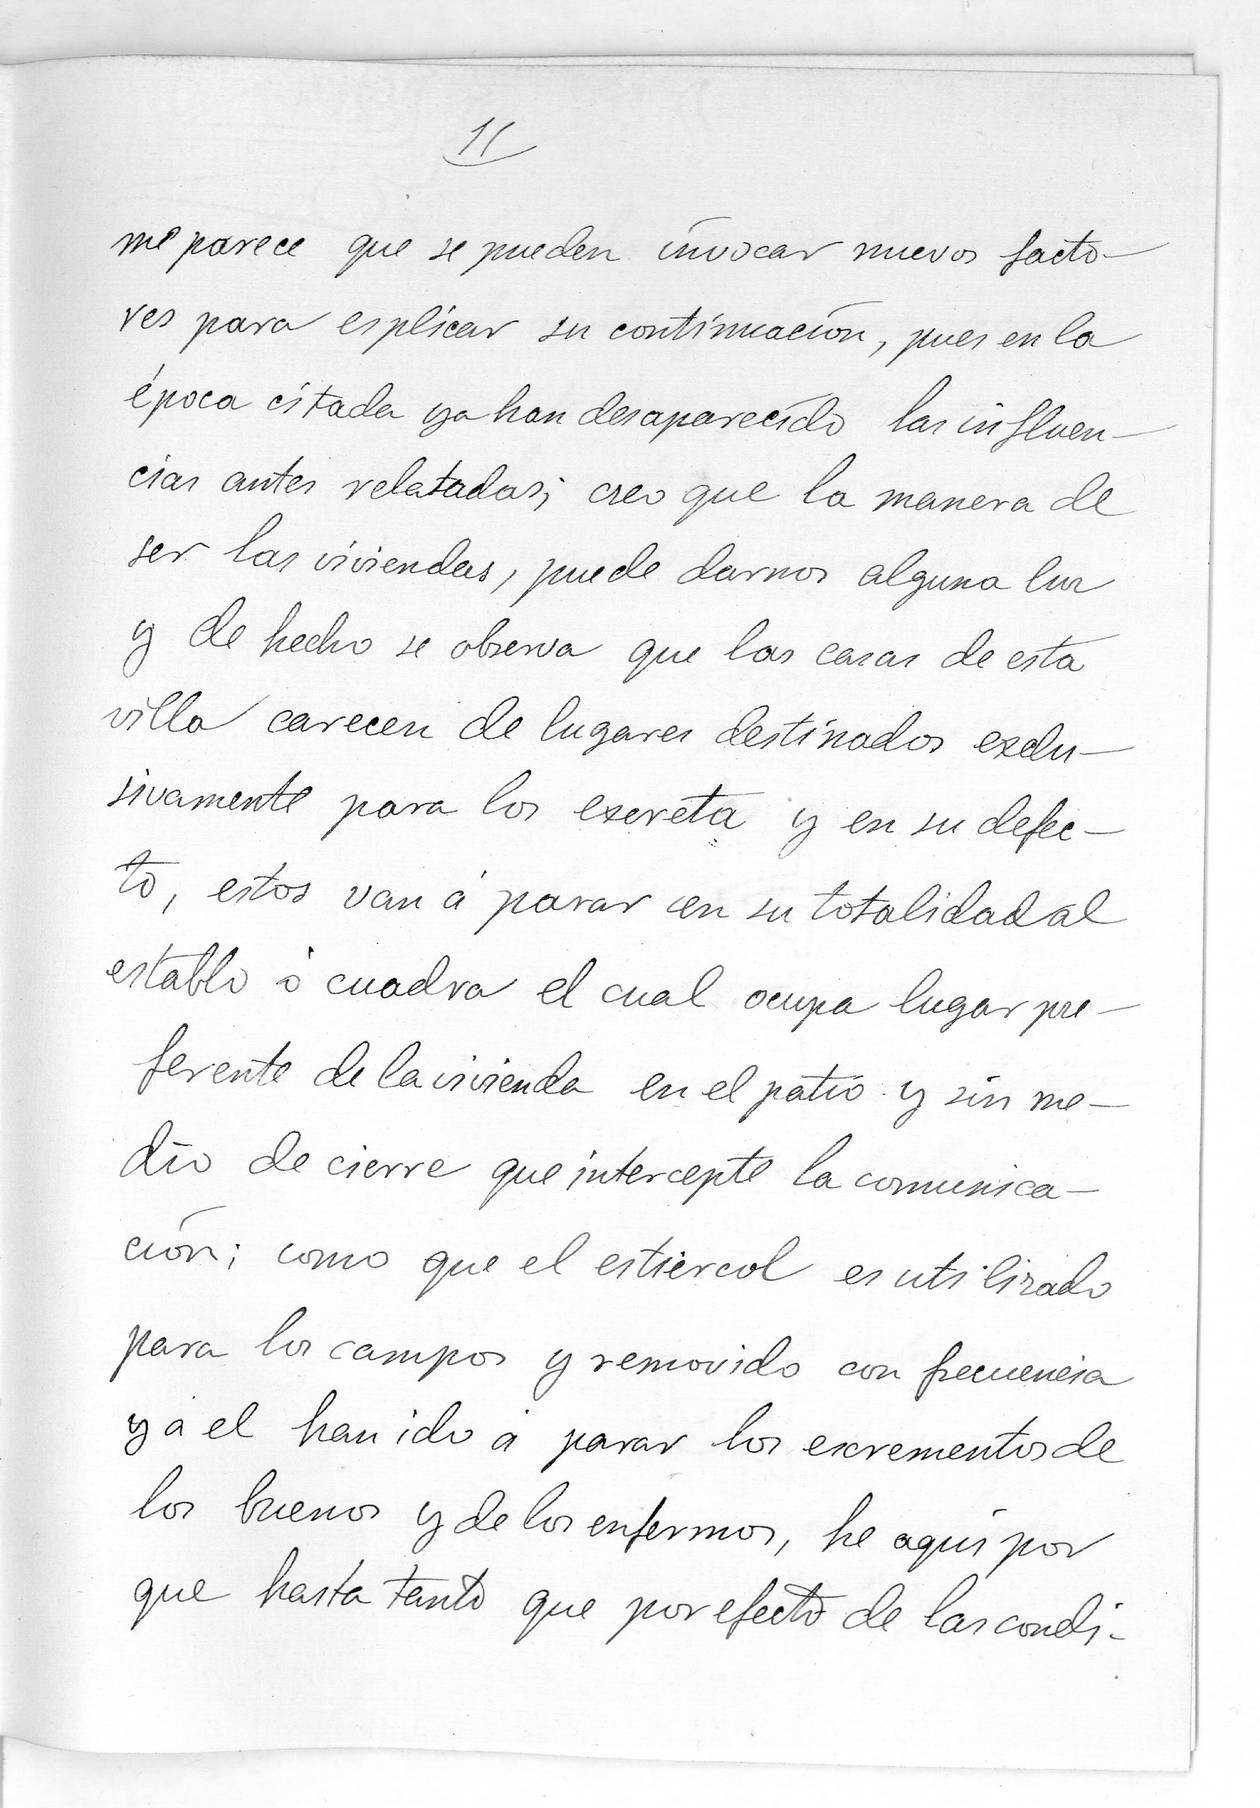 11
me parece que se pueden invocar nuevos facto-
res para esplicar su continuación, pues en la
época citada ya han desaparecido las influen-
cias antes relatadas; creo que la manera de
ser las viviendas, puede darnos alguna luz
y de hecho se observa que las casas de esta
villa carecen de lugares destinados exclu-
sivamente para los excreta y en su defec-
to, estos van á parar en su totalidad al
establo ó cuadra el cual ocupa lugar pre-
ferente de la vivienda en el patio y sin me-
dio de cierre que intercepte la comunica-
ción; como que el estiercol es utilizado
para los campos y removido con frecuencia
y á el han ido á parar los excrementos de
los buenos y de los enfermos, he aquí por
que hasta tanto que por efecto de las condi-